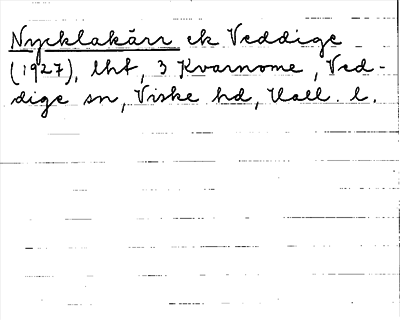 Nycklakärr ek Veddige
(1927), lht, 3 Kvarnome, Ved-
dige sn, Viske hd, Hall. l.